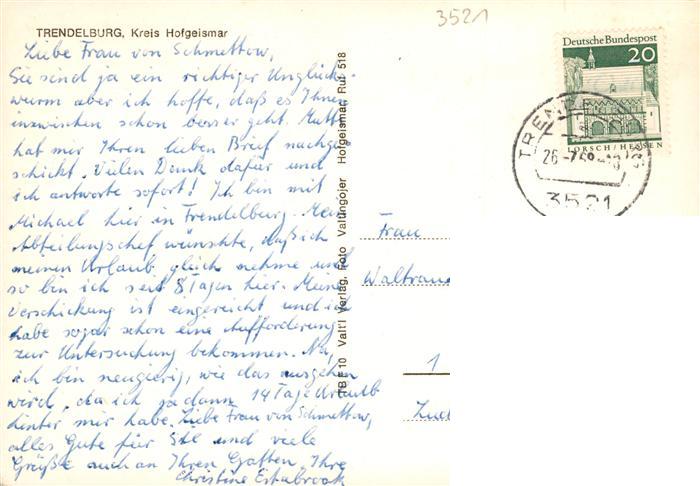 3521
TRENDELBURG, Kreis Hofgeismar
Liebe Frau von Schmettow,
Sie sind ja ein richtiger Unglücks-
wurm aber ich hoffe, daß es Ihnen
inzwischen schon besser geht. Mutti
hat mir Ihren lieben Brief nachge-
schickt. Vielen Dank dafür und
ich antworte sofort! Ich bin mit
Michael hier in Trendelburg. Mein
Abteilungschef wünschte, daß ich
meinen Urlaub gleich nehme und
so bin ich seit 8 Tagen hier. Meine
Verschickung ist eingereicht und ich
habe sogar schon eine Aufforderung
zur Untersuchung bekommen. Na,
ich bin neugierig, wie das ausgehen
wird, da ich ja dann 14 Tage Urlaub
hinter mir habe. Liebe Frau von Schmettow,
alles Gute für Sie und viele
Grüße auch an Ihren Gatten, Ihre
Christine
TBF 10 Vati'l Verlag, Foto Valtingojer Hofgeismar, Ruf 518
Deutsche Bundespost
20
LORSCH/HESSEN
3521
Frau
Waltrau
1